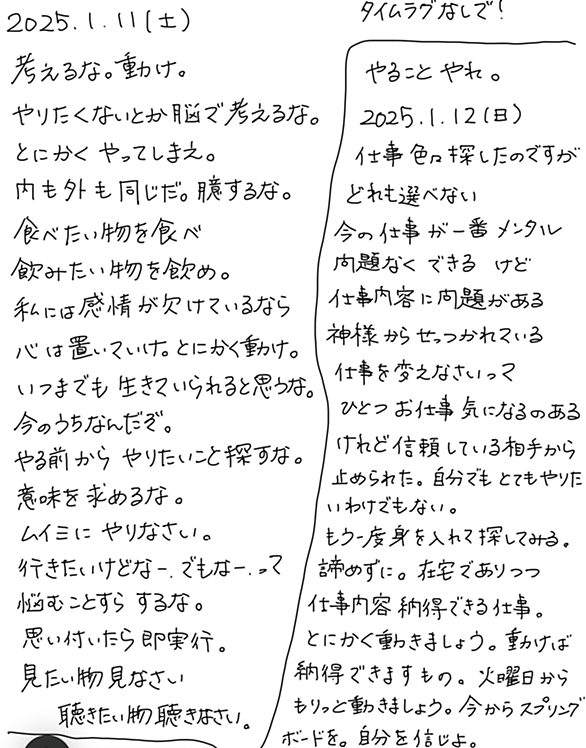 2025.1.11(土)
考えるな。動け。
やりたくないとか脳で考えるな。
とにかくやってしまえ。
内も外も同じだ。臆するな。
食べたい物を食べ
飲みたい物を飲め。
私には感情が欠けているなら
心は置いていけ。とにかく動け。
いつまでも生きていられると思うな。
今のうちなんだぞ。
やる前からやりたいこと探すな。
意味を求めるな。
ムイミにやりなさい。
行きたいけどなー、でもなー、って
悩むことすらするな。
思い付いたら即実行。
見たい物見なさい
聴きたい物聴きなさい。
タイムラグなしで!
やることやれ。
2025.1.12(日)
仕事色々探したのですが
どれも選べない
今の仕事が一番メンタル
問題なくできるけど
仕事内容に問題がある
神様からせっつかれている
仕事を変えなさいって
ひとつお仕事気になるのある
けれど信頼している相手から
止められた。自分でもとてもやりた
いわけでもない。
もう一度身を入れて探してみる。
諦めずに。在宅でありつつ
仕事内容納得できる仕事。
とにかく動きましょう。動けば
納得できますもの。火曜日から
もりっと動きましょう。今からスプリング
ボードを。自分を信じよ。